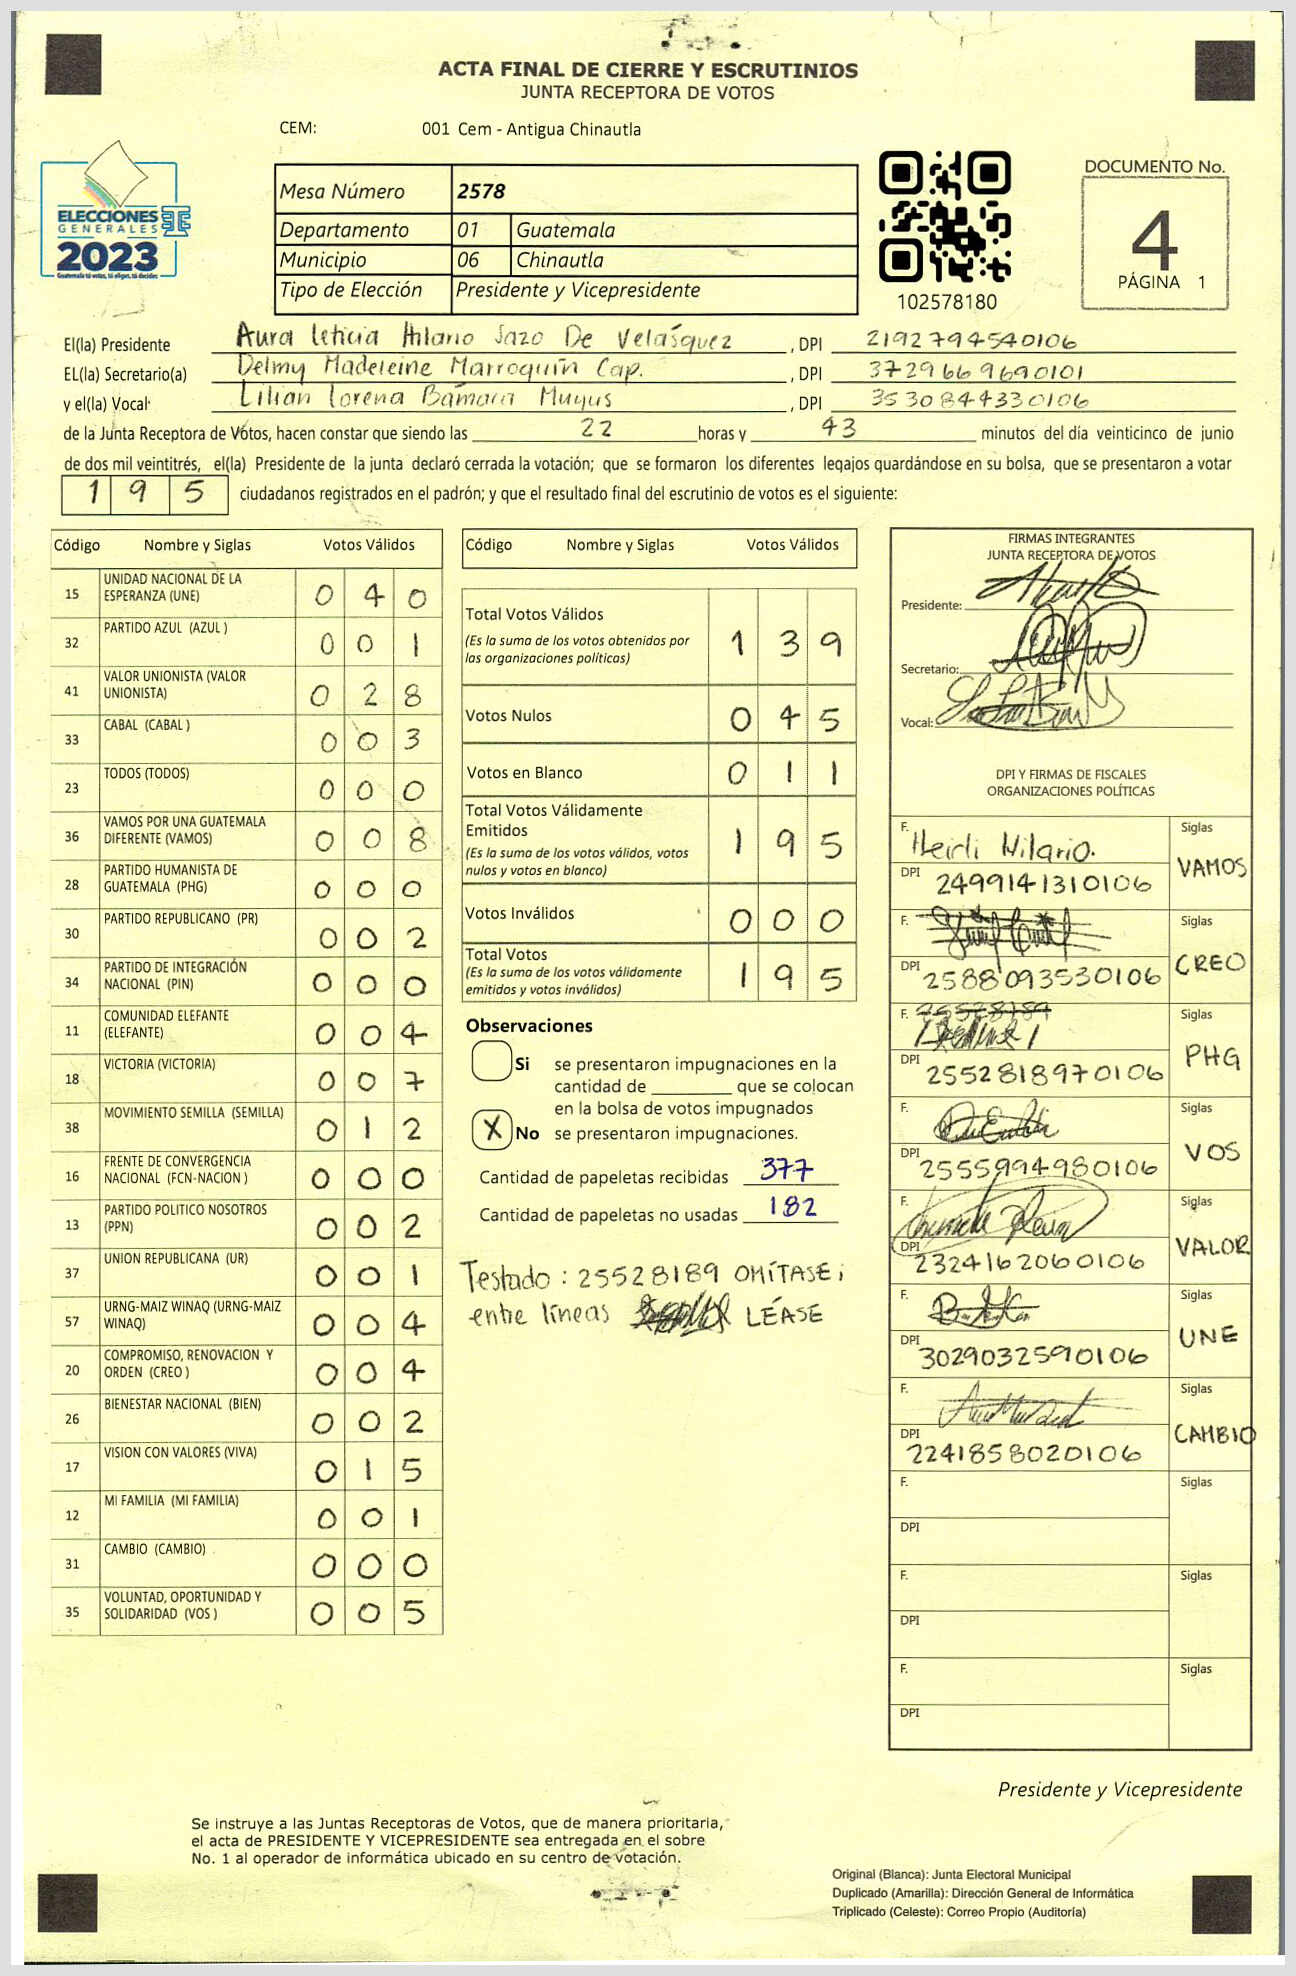 ACTA FINAL DE CIERRE Y ESCRUTINIOS
JUNTA RECEPTORA DE VOTOS
CEM: 001 Cem - Antigua Chinautla
ELECCIONES
GENERALES
2023
Guatemala tú votas, tú eliges, tú decides
Mesa Número 2578
Departamento 01 Guatemala
Municipio 06 Chinautla
Tipo de Elección Presidente y Vicepresidente
102578180
DOCUMENTO No.
4
PÁGINA 1
El(la) Presidente Aura Leticia Hilario Sazo De Velásquez , DPI 2192794540106
EL(la) Secretario(a) Delmy Madeleine Marroquín Cap. , DPI 3729669690101
y el(la) Vocal Lilian Lorena Bámaca Muyus , DPI 3530844330106
de la Junta Receptora de Votos, hacen constar que siendo las 22 horas y 43 minutos del día veinticinco de junio
de dos mil veintitrés, el(la) Presidente de la junta declaró cerrada la votación; que se formaron los diferentes legajos guardándose en su bolsa, que se presentaron a votar
195 ciudadanos registrados en el padrón; y que el resultado final del escrutinio de votos es el siguiente:
Código Nombre y Siglas Votos Válidos
15 UNIDAD NACIONAL DE LA
ESPERANZA (UNE) 0 4 0
32 PARTIDO AZUL (AZUL ) 0 0 1
41 VALOR UNIONISTA (VALOR
UNIONISTA) 0 2 8
33 CABAL (CABAL ) 0 0 3
23 TODOS (TODOS) 0 0 0
36 VAMOS POR UNA GUATEMALA
DIFERENTE (VAMOS) 0 0 8
28 PARTIDO HUMANISTA DE
GUATEMALA (PHG) 0 0 0
30 PARTIDO REPUBLICANO (PR) 0 0 2
34 PARTIDO DE INTEGRACIÓN
NACIONAL (PIN) 0 0 0
11 COMUNIDAD ELEFANTE
(ELEFANTE) 0 0 4
18 VICTORIA (VICTORIA) 0 0 7
38 MOVIMIENTO SEMILLA (SEMILLA) 0 1 2
16 FRENTE DE CONVERGENCIA
NACIONAL (FCN-NACION ) 0 0 0
13 PARTIDO POLITICO NOSOTROS
(PPN) 0 0 2
37 UNION REPUBLICANA (UR) 0 0 1
57 URNG-MAIZ WINAQ (URNG-MAIZ
WINAQ) 0 0 4
20 COMPROMISO, RENOVACION Y
ORDEN (CREO ) 0 0 4
26 BIENESTAR NACIONAL (BIEN) 0 0 2
17 VISION CON VALORES (VIVA) 0 1 5
12 MI FAMILIA (MI FAMILIA) 0 0 1
31 CAMBIO (CAMBIO) 0 0 0
35 VOLUNTAD, OPORTUNIDAD Y
SOLIDARIDAD (VOS ) 0 0 5
Código Nombre y Siglas Votos Válidos
Total Votos Válidos
(Es la suma de los votos obtenidos por
las organizaciones políticas) 1 3 9
Votos Nulos 0 4 5
Votos en Blanco 0 1 1
Total Votos Válidamente
Emitidos
(Es la suma de los votos válidos, votos
nulos y votos en blanco) 1 9 5
Votos Inválidos 0 0 0
Total Votos
(Es la suma de los votos válidamente
emitidos y votos inválidos) 1 9 5
Observaciones
Si se presentaron impugnaciones en la
cantidad de ________ que se colocan
en la bolsa de votos impugnados
X No se presentaron impugnaciones.
Cantidad de papeletas recibidas 377
Cantidad de papeletas no usadas 182
Testado : 25528189 OMÍTASE;
entre líneas LÉASE
FIRMAS INTEGRANTES
JUNTA RECEPTORA DE VOTOS
Presidente:
Secretario:
Vocal:
DPI Y FIRMAS DE FISCALES
ORGANIZACIONES POLÍTICAS
F. Heidi Hilario. Siglas
DPI 2499141310106 VAMOS
F. Siglas
DPI 2588093530106 CREO
F. 25528189
DPI 2552818970106 PHG
F. Siglas
DPI 2555994980106 VOS
F. Siglas
DPI 2324162060106 VALOR
F. Siglas
DPI 3029032590106 UNE
F. Siglas
DPI 2241858020106 CAMBIO
F. Siglas
DPI
F. Siglas
DPI
F. Siglas
DPI
Presidente y Vicepresidente
Se instruye a las Juntas Receptoras de Votos, que de manera prioritaria,
el acta de PRESIDENTE Y VICEPRESIDENTE sea entregada en el sobre
No. 1 al operador de informática ubicado en su centro de votación.
Original (Blanca): Junta Electoral Municipal
Duplicado (Amarilla): Dirección General de Informática
Triplicado (Celeste): Correo Propio (Auditoría)